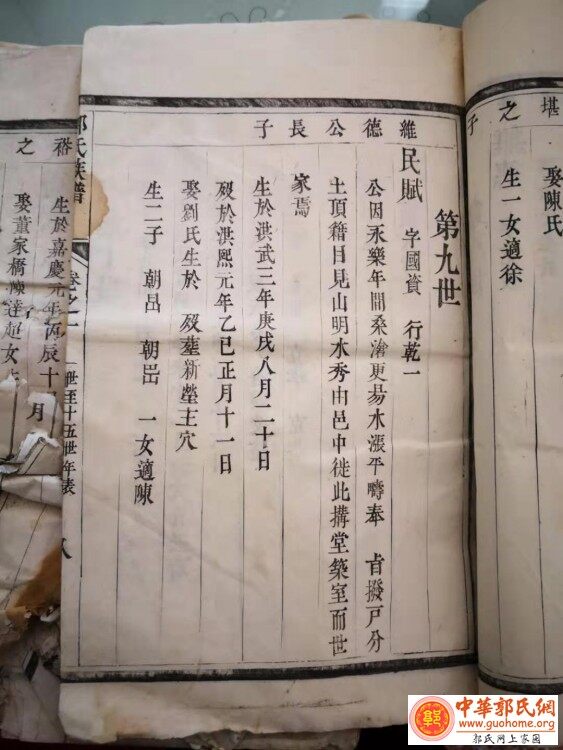 堪之子
娶陳氏
生一女適徐
維德公長子
第九世
民賦 字國資 行乾一
公因永樂年間桑滄更易水漲平疇奉 旨撥戶分
土頂籍目見山明水秀由邑中徙此搆堂築室而世
家焉
生於洪武三年庚戌八月二十日
歿於洪熙元年乙巳正月十一日
娶劉氏生於 歿葬新塋主穴
生二子 朝 朝 一女適陳
氏族譜
卷之二
世至十五世年表
八
裕之
生於嘉慶元年丙辰十 月
娶董家橋 達超女
中華郭氏網
www.guohome.org
郭氏網上家園